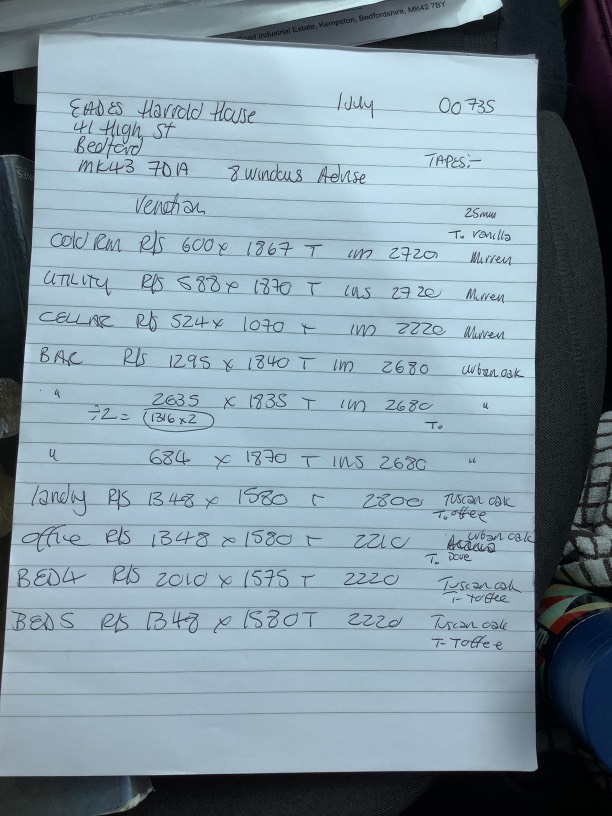 Road Industrial Estate, Kempston, Bedfordshire, MK42 7BY
EADES Harrold House 1 July 00735
41 High St
Bedford
MK43 7DA 8 windows Advise TAPES:-
Venetian 25mm
T. Vanilla
COLD RM R/S 600 x 1867 T IM 2720 Mirren
UTILITY R/S 588 x 1870 T INS 2720 Mirren
CELLAR R/S 524 x 1070 T IM 2220 Mirren
BAR R/S 1295 x 1840 T IM 2680 urban oak
" 2635 x 1835 T IM 2680 "
÷2= 1316 x 2 T.
" 684 x 1870 T INS 2680 "
landry R/S 1348 x 1580 T 2800 Tuscan oak
T. toffee
office R/S 1348 x 1580 T 2210 urban oak
T. Dove
BED4 R/S 2010 x 1575 T 2220 Tuscan oak
T- toffee
BED5 R/S 1348 x 1580 T 2220 Tuscan oak
T- Toffee